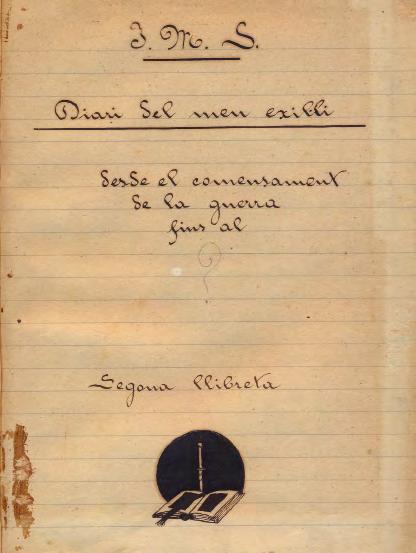 J. M. S.
Diari del meu exilli
desde el comensament
de la guerra
fins al
?
Segona llibreta